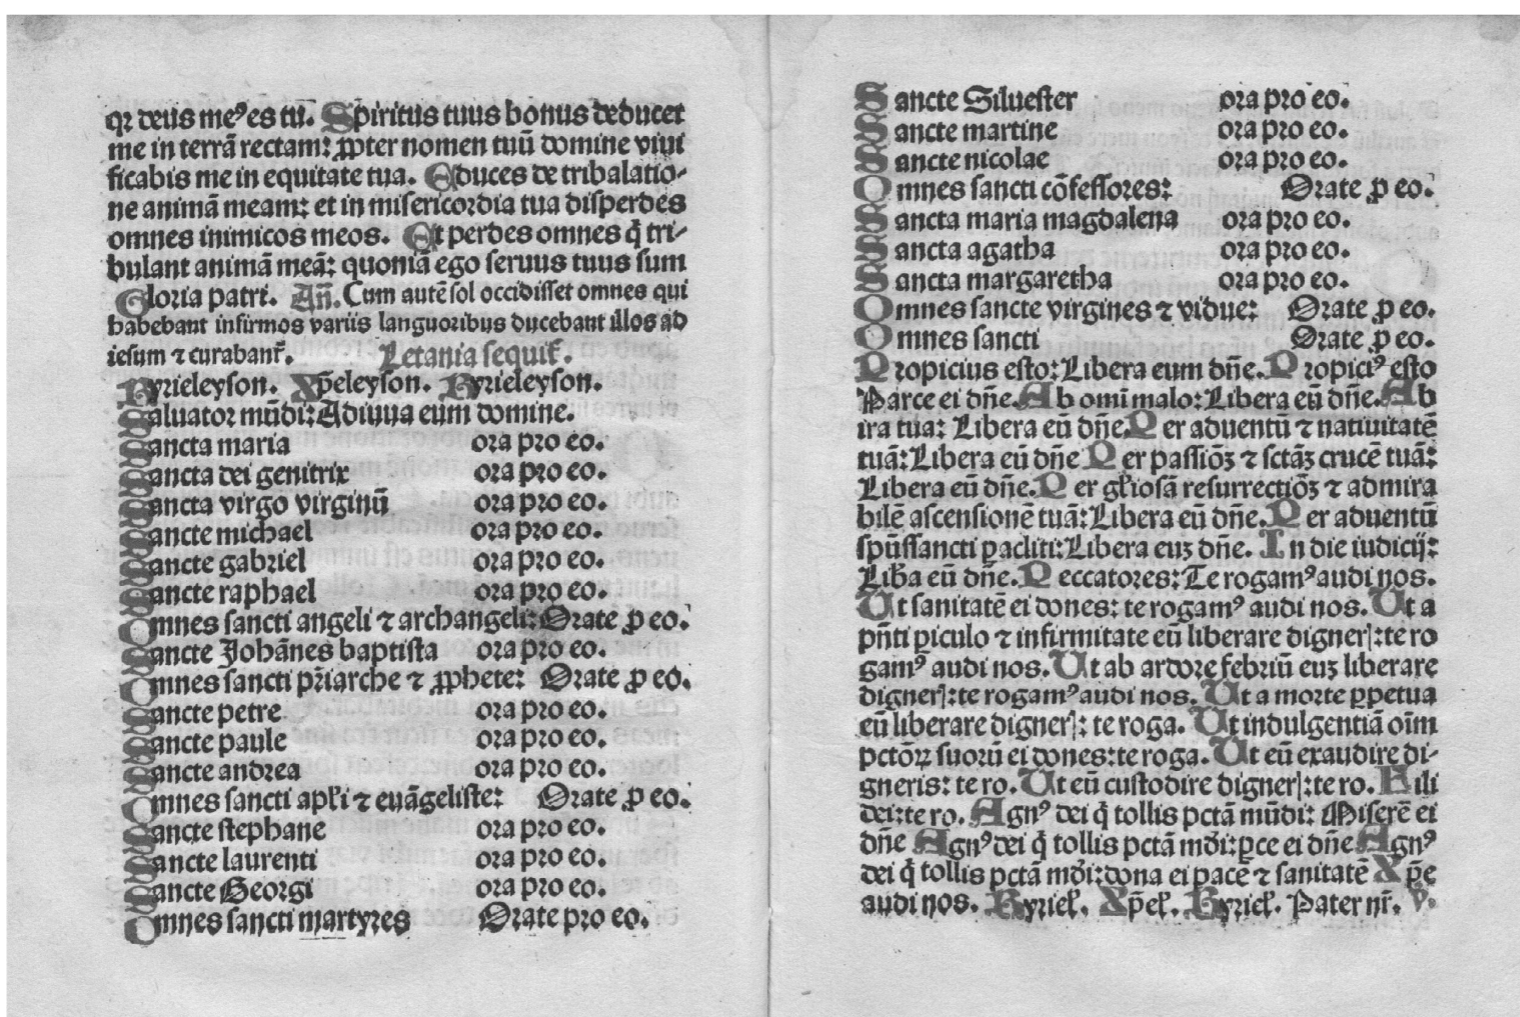 qꝛ deus meꝰ es tu. Spiritus tuus bonus deducet
me in terrā rectam: ꝓpter nomen tuū domine viui
ficabis me in equitate tua. Educes de tribulatio-
ne animā meam: et in misericordia tua disperdes
omnes inimicos meos. Et perdes omnes q̄ tri-
bulant animā meā: quoniā ego seruus tuus sum
Gloria patri. An̄. Cum autē sol occidisset omnes qui
habebant infirmos variis languoribus ducebant illos ad
iesum ⁊ curabanť. Letania sequiť.
Kyrieleyson. Xp̄eleyson. Kyrieleyson.
Saluator mūdi: Adiuua eum domine.
Sancta maria ora pro eo.
Sancta dei genitrix ora pro eo.
Sancta virgo virginū ora pro eo.
Sancte michael ora pro eo.
Sancte gabriel ora pro eo.
Sancte raphael ora pro eo.
Omnes sancti angeli ⁊ archangeli: Orate ꝓ eo.
Sancte Johānes baptista ora pro eo.
Omnes sancti pr̄iarche ⁊ ꝓphete: Orate ꝓ eo.
Sancte petre ora pro eo.
Sancte paule ora pro eo.
Sancte andrea ora pro eo.
Omnes sancti apł'i ⁊ euāgeliste: Orate ꝓ eo.
Sancte stephane ora pro eo.
Sancte laurenti ora pro eo.
Sancte Georgi ora pro eo.
Omnes sancti martyres Orate pro eo.
Sancte Siluester ora pro eo.
Sancte martine ora pro eo.
Sancte nicolae ora pro eo.
Omnes sancti cōfessores: Orate ꝓ eo.
Sancta maria magdalena ora pro eo.
Sancta agatha ora pro eo.
Sancta margaretha ora pro eo.
Omnes sancte virgines ⁊ vidue: Orate ꝓ eo.
Omnes sancti Orate ꝓ eo.
Propicius esto: Libera eum dn̄e. Propiciꝰ esto
Parce ei dn̄e. Ab om̄i malo: Libera eū dn̄e. Ab
ira tua: Libera eū dn̄e. Per aduentū ⁊ natiuitatē
tuā: Libera eū dn̄e Per passiōꝫ ⁊ sctāꝫ crucē tuā:
Libera eū dn̄e. Per gł'iosā resurrectiōꝫ ⁊ admira
bilē ascensionē tuā: Libera eū dn̄e. Per aduentū
spūssancti ꝑacliti: Libera euꝫ dn̄e. In die iudicij:
Lib'a eū dn̄e. Peccatores: Te rogamꝰ audi nos.
Ut sanitatē ei dones: te rogamꝰ audi nos. Ut a
pn̄ti ꝑiculo ⁊ infirmitate eū liberare digner|: te ro
gamꝰ audi nos. Ut ab ardore febriū euꝫ liberare
digner|: te rogamꝰ audi nos. Ut a morte ꝑpetua
eū liberare digner|: te roga. Ut indulgentiā oīm
pctōꝝ suorū ei dones: te roga. Ut eū exaudire di-
gneris: te ro. Ut eū custodire digner|: te ro. Fili
dei: te ro. Agnꝰ dei q̄ tollis pctā mūdi: Miserē ei
dn̄e Agnꝰ dei q̄ tollis pctā mdi: ꝑce ei dn̄e Agnꝰ
dei q̄ tollis pctā mdi: dona ei pacē ⁊ sanitatē Xp̄e
audi nos. Kyriel'. Xp̄el'. Kyriel'. Pater nr̄. V.